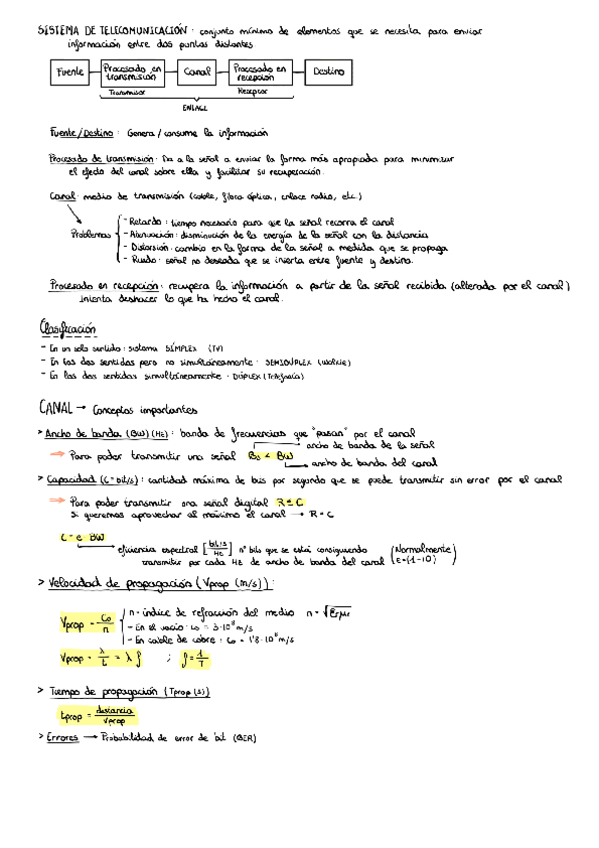 SISTEMA DE TELECOMUNICACIÓN: conjunto mínimo de elementos que se necesita para enviar
información entre dos puntos distantes
Fuente Procesado en transmisión Canal Procesado en recepción Destino
Transmisor Receptor
ENLACE
Fuente/Destino: Genera/consume la información
Procesado de transmisión: Da a la señal a enviar la forma más apropiada para minimizar
el efecto del canal sobre ella y facilitar su recuperación.
Canal: medio de transmisión (cable, fibra óptica, enlace radio, etc.)
Problemas
- Retardo: tiempo necesario para que la señal recorra el canal
- Atenuación: disminución de la energía de la señal con la distancia
- Distorsión: cambio en la forma de la señal a medida que se propaga
- Ruido: señal no deseada que se inserta entre fuente y destino.
Procesado en recepción: recupera la información a partir de la señal recibida (alterada por el canal)
intenta deshacer lo que ha hecho el canal.
Clasificación
- En un solo sentido: sistema SÍMPLEX (TV)
- En los dos sentidos pero no simultáneamente: SEMIDÚPLEX (Walkie)
- En los dos sentidos simultáneamente: DÚPLEX (Telefonía)
CANAL → Conceptos importantes
> Ancho de banda (BW)(Hz): banda de frecuencias que "pasan" por el canal
ancho de banda de la señal
→ Para poder transmitir una señal Bs < BW
ancho de banda del canal
> Capacidad (C = bit/s): cantidad máxima de bits por segundo que se puede transmitir sin error por el canal
→ Para poder transmitir una señal digital R ≤ C
Si queremos aprovechar al máximo el canal → R = C
C = e · BW
eficiencia espectral [bit/s / Hz] nº bits que se está consiguiendo (Normalmente
transmitir por cada Hz de ancho de banda del canal e=(1-10))
> Velocidad de propagación (Vprop (m/s)):
n = índice de refracción del medio n = √εrμr
Vprop = Co/n
- En el vacío: co = 3·10⁸ m/s
- En cable de cobre: co = 1'8·10⁸ m/s
Vprop = λ/t = λ f ; f = 1/T
> Tiempo de propagación (Tprop (s))
tprop = distancia/Vprop
> Errores → Probabilidad de error de bit (BER)